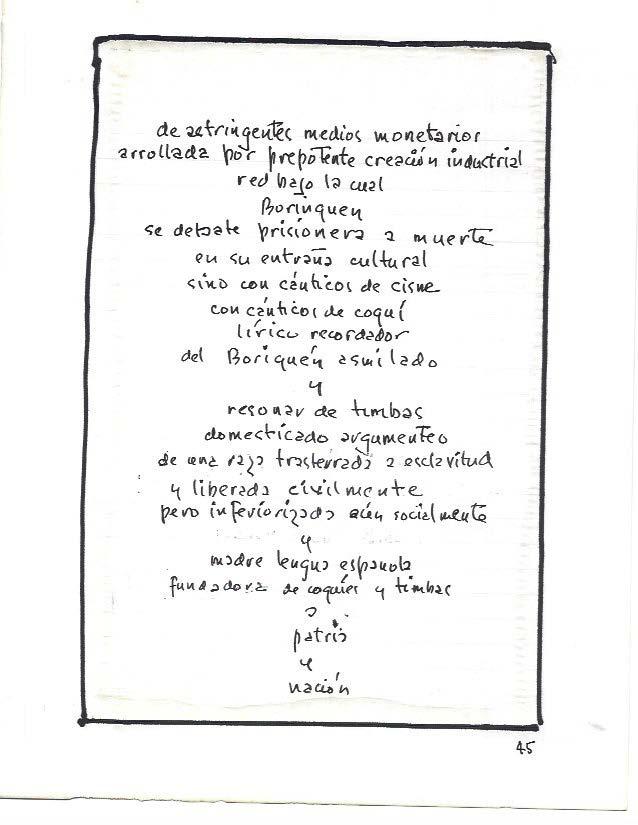 de astringentes medios monetarios
arrollada por prepotente creación industrial
red bajo la cual
Borinquen
se debate prisionera a muerte
en su entraña cultural
sino con cánticos de cisne
con cánticos de coquí
lírico recordador
del Boriquén asmilado
y
resonar de timbas
domesticado argumenteo
de una raza trasterrada a esclavitud
y liberada civilmente
pero inferiorizada aún socialmente
y
madre lengua española
fundadora de coquíes y timbas
a
patria
y
nación
45